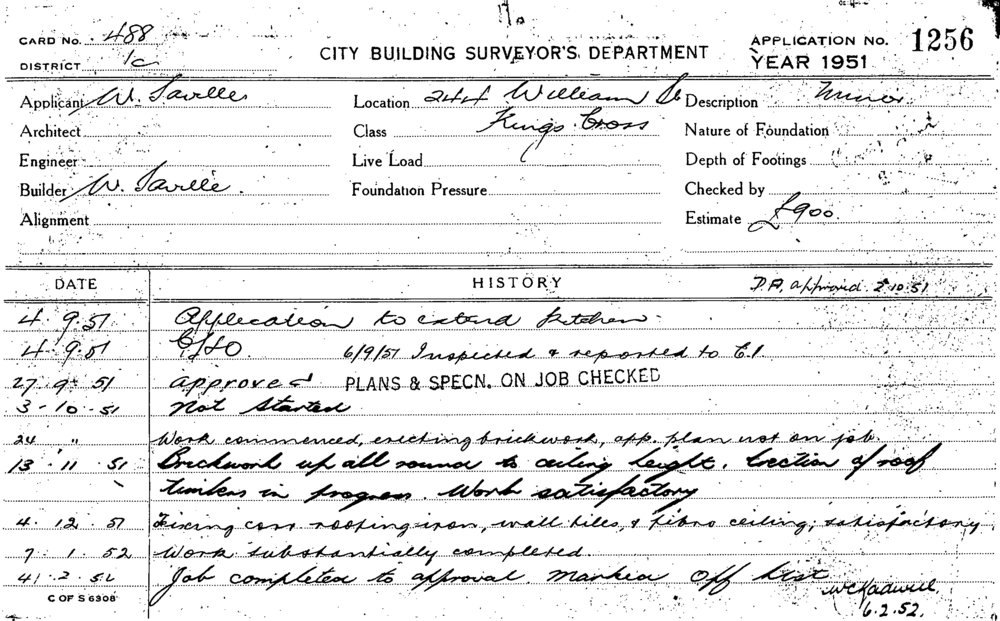 CARD No. 488
DISTRICT 1c
CITY BUILDING SURVEYOR'S DEPARTMENT
APPLICATION No. 1256
YEAR 1951
Applicant W. Saville
Location 244 William St
Description Minor
Architect
Class Kings Cross
Nature of Foundation
Engineer
Live Load
Depth of Footings
Builder W. Saville.
Foundation Pressure
Checked by
Alignment
Estimate £900.
DATE HISTORY D.A. approved 2.10.51
4 9.51 Application to extend kitchen.
4.9.51 6/9/51 Inspected & reported to
27.9.51 approved PLANS & SPECN. ON JOB CHECKED
3-10.51 Not started
24 " Work commenced, erecting brickwork, app. plan not on job.
13.11.51 Brickwork up all round to ceiling height. Erection of roof
timbers in progress. Work satisfactory
4.12.51 Fixing corr. roofing iron, wall tiles, & fibro ceiling, satisfactory
7.1.52 Work substantially completed.
4.2.52 Job completed to approval Marked Off List
6.2.52.
C OF S 6308